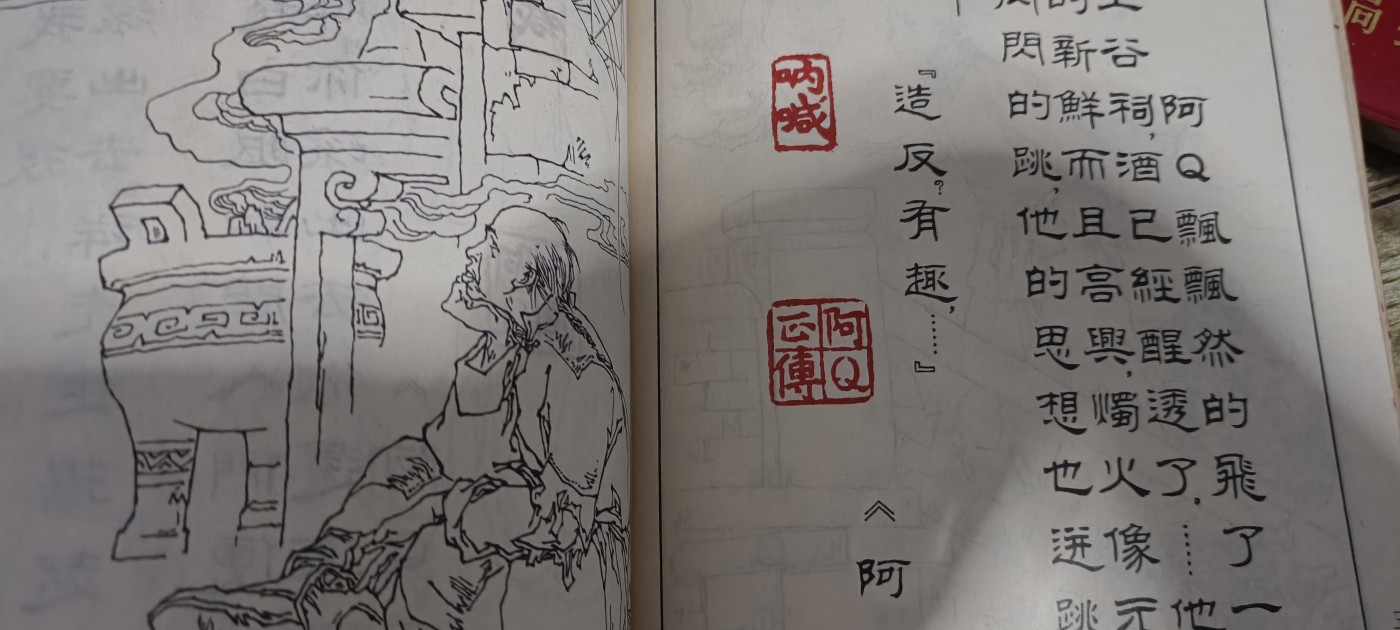 阿Q飄飄然的飛了一
谷祠,酒已經醒透了.……他
的新鮮而且高興,燭火像元
閃的跳,他的思想也迸跳
『造反?有趣,……』
《阿
呐喊
阿Q正傳